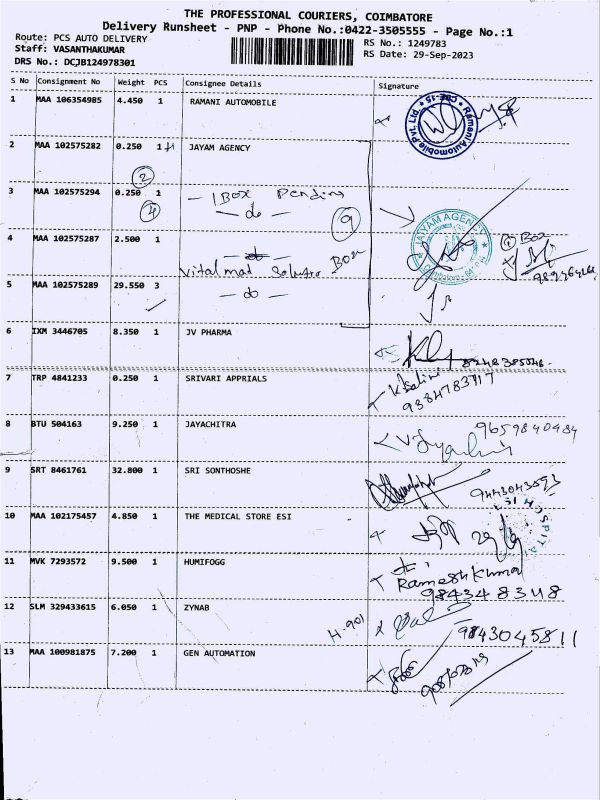 THE PROFESSIONAL COURIERS, COIMBATORE
Delivery Runsheet - PNP - Phone No.:0422-3505555 - Page No.:1
Route: PCS AUTO DELIVERY
RS No.: 1249783
Staff: VASANTHAKUMAR
RS Date: 29-Sep-2023
DRS No.: DCJB124978301
S No Consignment No Weight PCS Consignee Details Signature
1 MAA 106354985 4.450 1 RAMANI AUTOMOBILE
Ramani Automobile Pvt. Ltd. CBE-15
2 MAA 102575282 0.250 1 JAYAM AGENCY
2
3 MAA 102575294 0.250 1 - 1 Box Pending
4 - do - 9
JAYAM AGENCY
4 MAA 102575287 2.500 1 - do -
Box
Vital mad Box
5 MAA 102575289 29.550 3 - do -
6 IXM 3446705 8.350 1 JV PHARMA
7 TRP 4841233 0.250 1 SRIVARI APPRIALS
9384783717
8 BTU 504163 9.250 1 JAYACHITRA
9659840484
9 SRT 8461761 32.800 1 SRI SONTHOSHE
9443043593
10 MAA 102175457 4.850 1 THE MEDICAL STORE ESI
HOSPITAL
11 MVK 7293572 9.500 1 HUMIFOGG
Rameshkumar
9843483348
12 SLM 329433615 6.050 1 ZYNAB
H-901
9843045811
13 MAA 100981875 7.200 1 GEN AUTOMATION